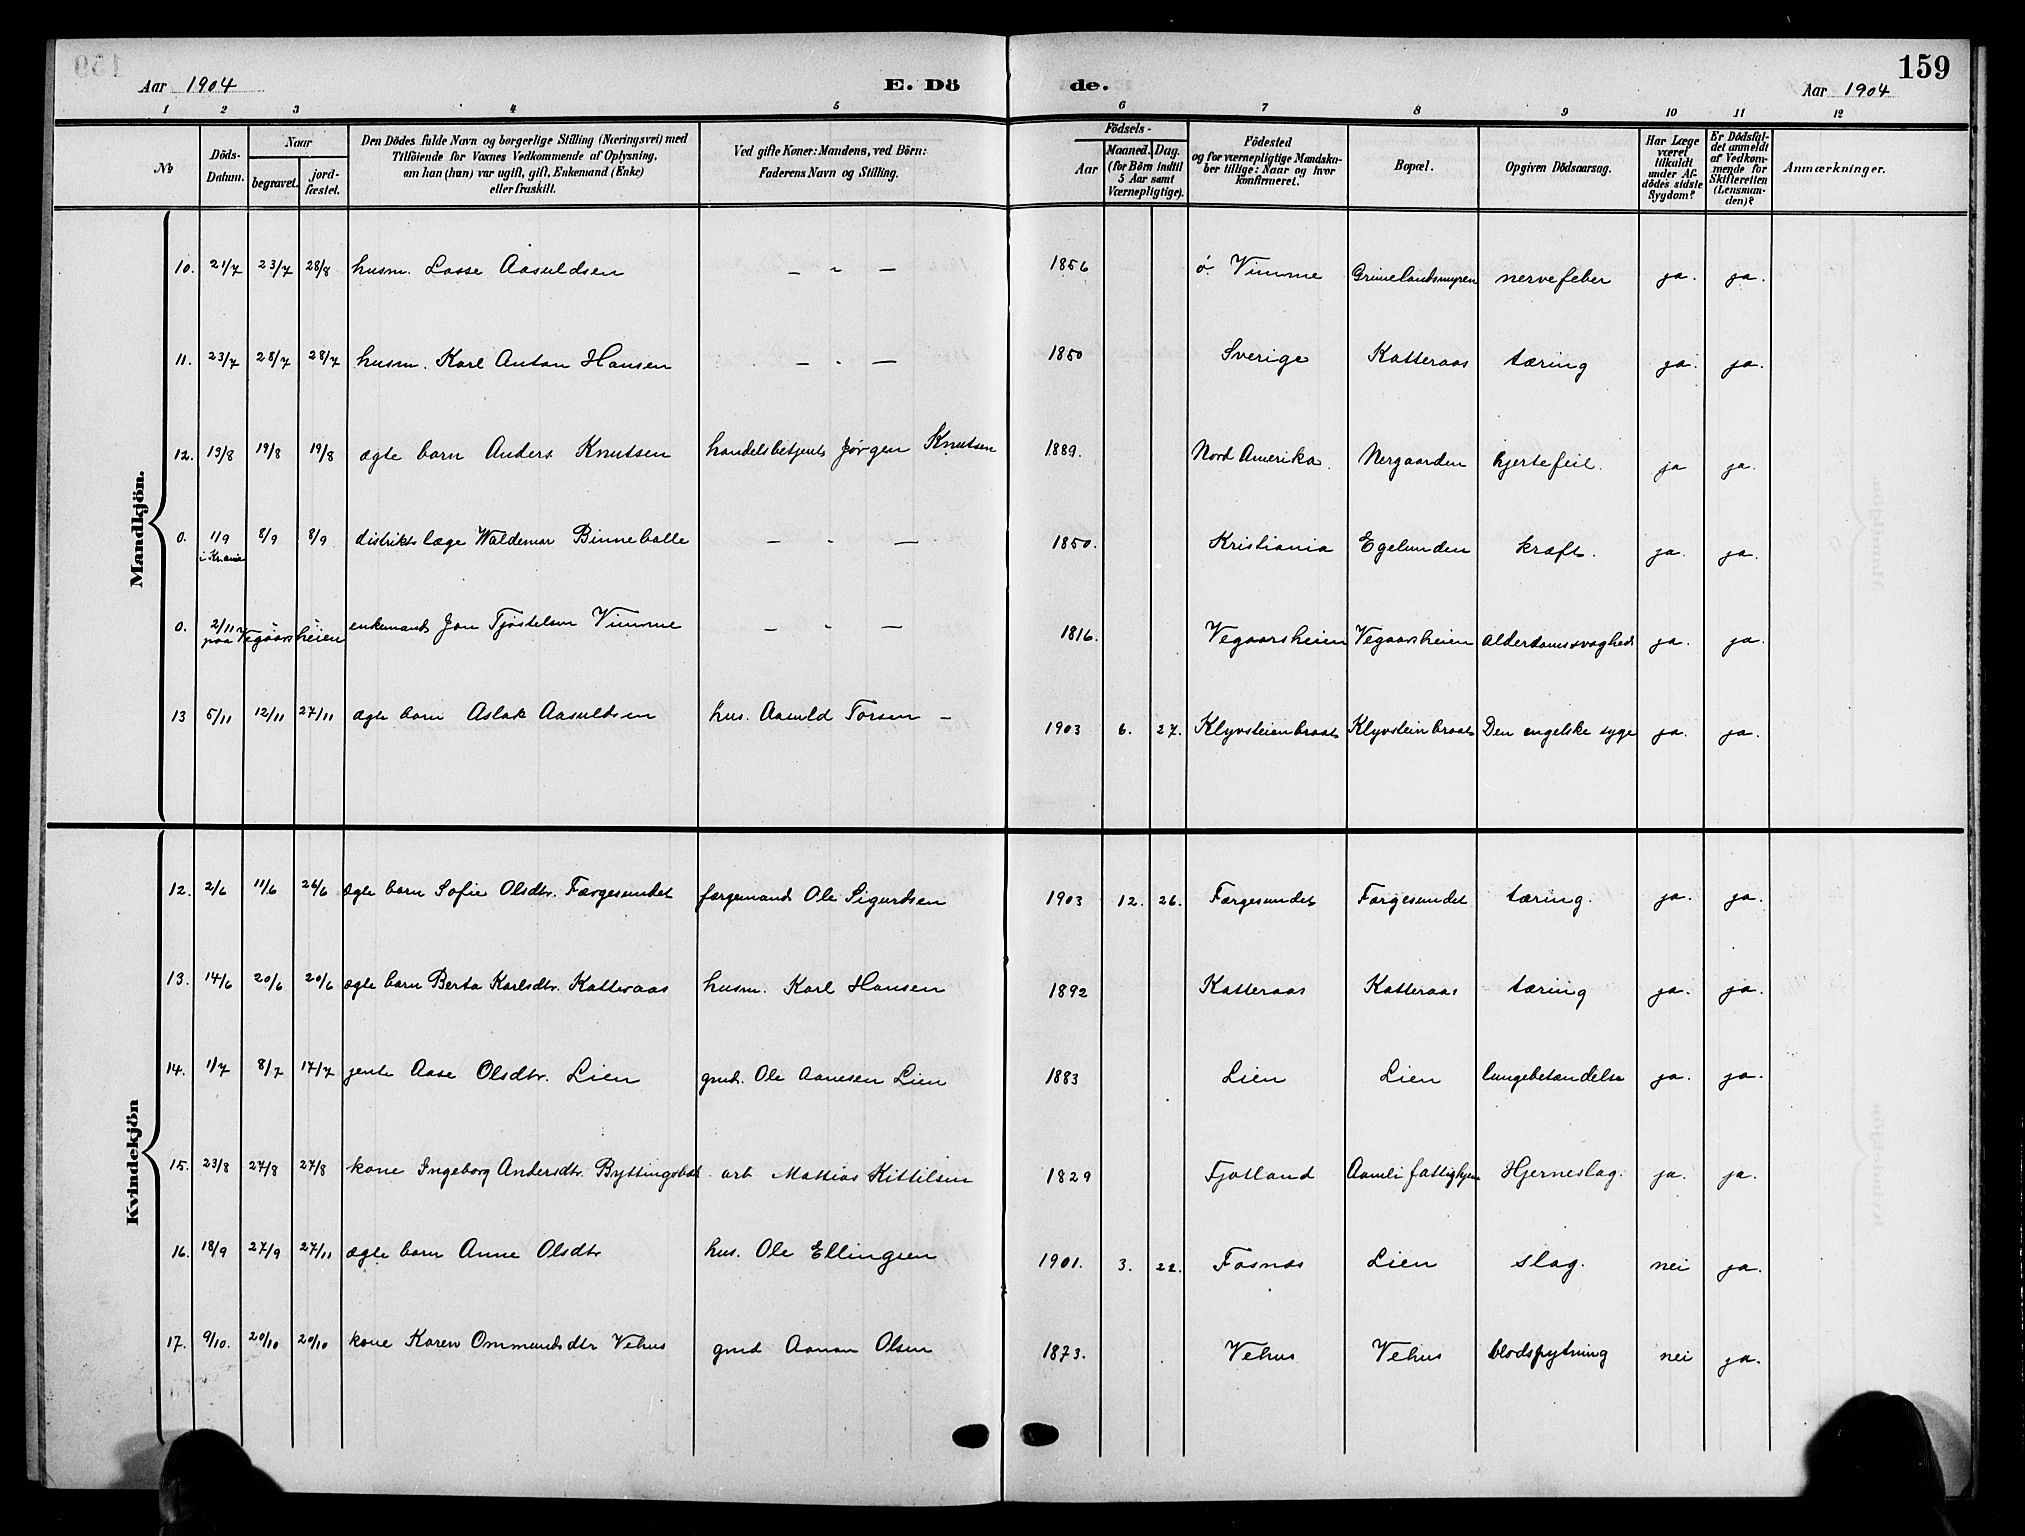 159
Aar 1904
E. Dö de.
Aar 1904
1 2 3 4 5 6 7 8 9 10 11 12
No
Döds-Datum.
Naar
begravet.
jord-fæstet.
Den Dödes fulde Navn og borgerlige Stilling (Næringsvei) med
Tilföiende for Voxnes Vedkommende af Oplysning,
om han (hun) var ugift, gift, Enkemand (Enke)
eller fraskilt.
Ved gifte Koner: Mandens, ved Börn:
Faderens Navn og Stilling.
Födsels-
Aar
Maaned. Dag.
(for Börn indtil
5 Aar samt
Værnepligtige).
Födested
og for værnepligtige Mandska-
ber tillige: Naar og hvor
konfirmeret.
Bopæl.
Opgiven Dödsaarsag.
Har Læge
været
tilkaldt
under Af-
dödes sidste
Sygdom?
Er Dödsfal-
det anmeldt
af Vedkom-
mende for
Skifteretten
(Lensman-
den)?
Anmærkninger.
Mandkjön.
10. 21/7 23/7 28/8 husm. Lasse Aasuldsen — " — 1856 ø. Vimme Grimelandsmyren nervefeber ja. ja.
11. 23/7 28/7 28/7 husm. Karl Anton Hansen — " — 1850 Sverige Katteraas tæring ja. ja.
12. 13/8 19/8 19/8 ægte barn Anders Knutsen handelsbetjent Jørgen Knutsen 1889. Nord Amerika Nergaarden hjertefeil. ja ja.
0. 1/9 i Kr.ania 8/9 8/9 distriktslæge Waldemar Binneballe — " — 1850. Kristiania Egelunden kræft. ja. ja.
0. 2/11 paa Vegaarsheien " " enkemand Jon Tjøstelsen Vimme — " — 1816. Vegaarsheien Vegaarsheien Alderdomssvaghed ja. ja.
13 5/11 12/11 27/11 ægte barn Aslak Aasuldsen hus. Aasuld Torsen — 1903 6. 27. Klyvsteinbraat Klyvsteinbraat Den engelske syge ja. ja.
Kvindekjön
12. 2/6 11/6 26/6 ægte barn Sofie Olsdtr. Færgesundet færgemand Ole Sigurdsen 1903 12. 26. Færgesundet Færgesundet tæring. ja. ja.
13. 14/6 20/6 20/6 ægte barn Berta Karlsdtr. Katteraas husm. Karl Hansen 1892 Katteraas Katteraas tæring ja. ja.
14. 1/7 8/7 17/7 jente Aase Olsdtr. Lien gmd. Ole Aanesen Lien 1883 Lien Lien lungebetændelse ja. ja.
15. 23/8 27/8 27/8 kone Ingeborg Andersdtr. arb Mattias Kittilsen 1829 Fjotland Aamli fattighjem Hjerneslag. ja. ja.
16. 18/9 27/9 27/11 ægte barn Anne Olsdtr hus. Ole Ellingsen 1901. 3. 22. Fosnes Lien slag. nei ja.
17. 9/10. 20/10 20/10 kone Karen Ommundsdtr Vehus gmd Aanon Olsen 1873. Vehus Vehus blodspytning nei ja.